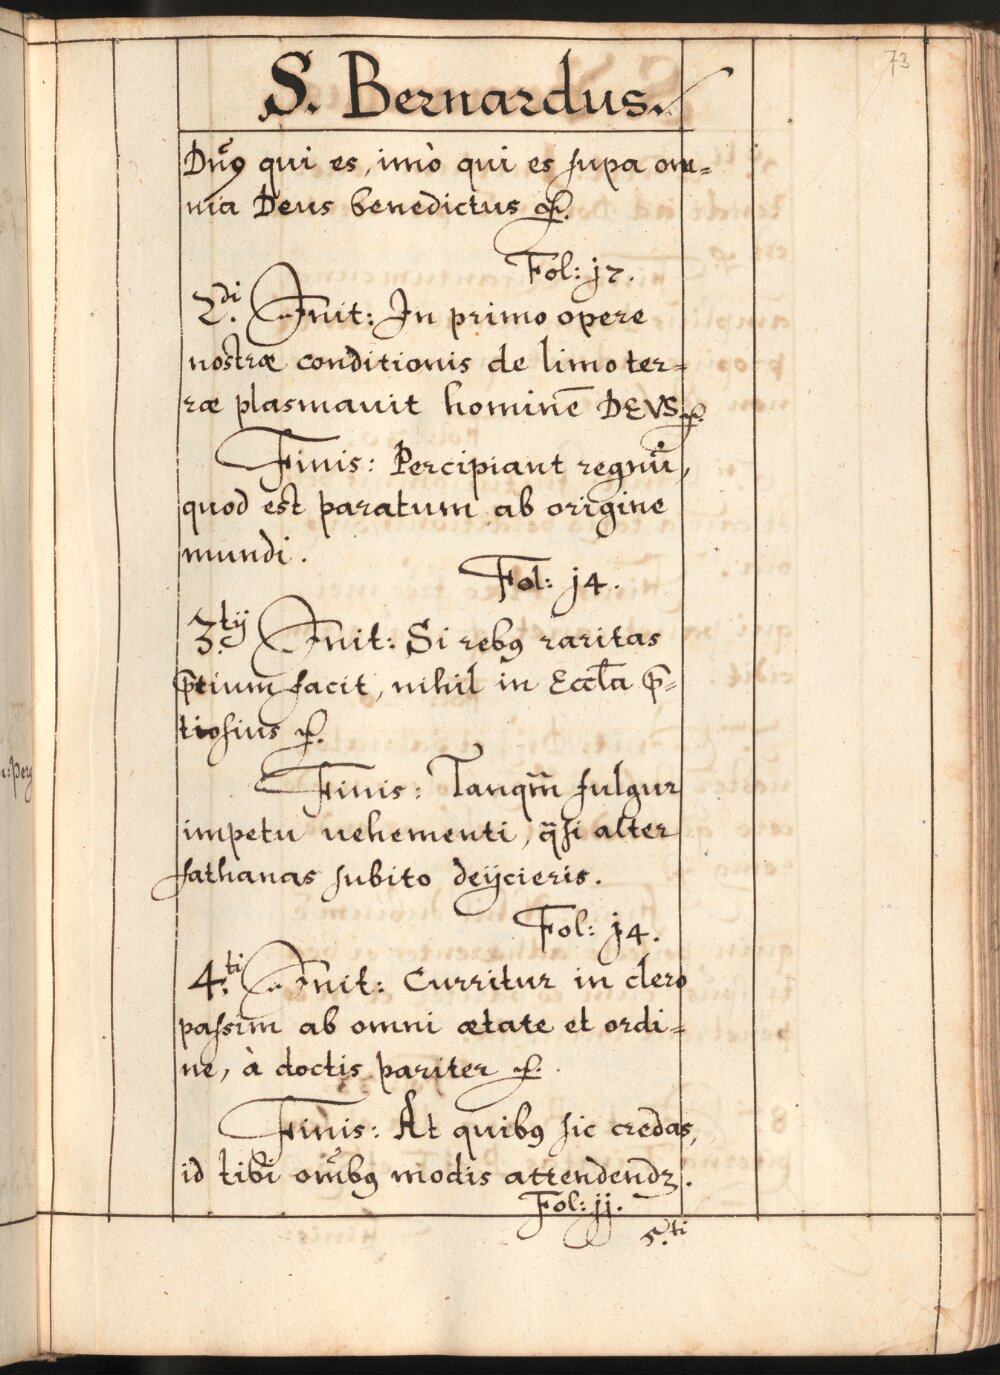 73
S. Bernardus.
Dn̄9 qui es, imò qui es supa om-
nia Deus benedictus &c.
Fol: j7.
2.di Init: In primo opere
nostræ conditionis de limo ter-
ræ plasmauit hominē DEVS &c.
Finis: Percipiant regnū,
quod est paratum ab origine
mundi.
Fol: j4.
3.tij Init: Si reb9 raritas
p̄tium facit, nihil in Eccl̄a p̄-
tiosius &c.
Finis: Tanqm̄ fulgur
impetu uehementi, q̄si alter
sathanas subito deijcieris.
Fol: j4.
4.ti Init: Curritur in clero
passim ab omni ætate et ordi-
ne, à doctis pariter &c.
Finis: At quib9 sic credas,
id tibi om̄b9 modis attendendꝫ.
Fol: jj.
5.ti